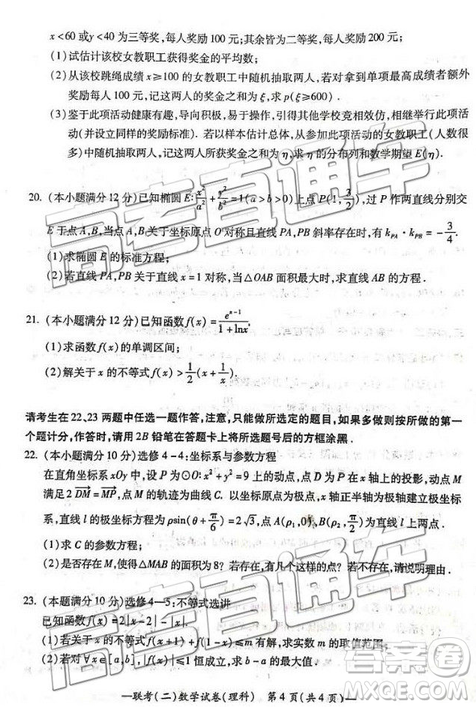 x<60或y<40为三等奖,每人奖励100元;其余皆为二等奖,每人奖励200元;
(1)试估计该校女教职工获得奖金的平均数;
(2)从该校跳绳成绩x≥100的女教职工中随机抽取两人,若对拿到单项最高成绩者额外
奖励每人100元,记这两人的奖金之和为ξ,求p(ξ≥600).
(3)鉴于此项活动健康有趣,导向积极,易于操作,引得其他学校竞相效仿,相继举行此项活动
(并设立同样的奖励标准).若以样本估计总体,从参加此项活动的女教职工(人数很多)
中随机抽取两人,记这两人所获奖金之和为η,求η的分布列和数学期望E(η).
20.(本小题满分12分)已知椭圆E:x²/a²+y²/b²=1(a>b>0)上点P(1,3/2),过P作两直线分别交
E于点A,B,当点A,B关于坐标原点O对称且直线PA,PB斜率存在时,有k_PA·k_PB=-3/4.
(1)求椭圆E的标准方程;
(2)若直线PA,PB关于直线x=1对称,当△OAB面积最大时,求直线PA的方程.
21.(本小题满分12分)已知函数f(x)=e^(x-1)/(1+lnx).
(1)求函数f(x)的单调区间;
(2)解关于x的不等式f(x)>1/2(x+1/x)
请考生在22,23两题中任选一题作答,注意,只能做所选定的题目,如果多做则按所做的第一
个题计分,作答时,请用2B铅笔在答题卡上将所选题号后的方框涂黑.
22.(本小题满分10分)选修4-4:坐标系与参数方程
在直角坐标系xOy中,设P为⊙O:x²+y²=9上的动点,点D为P在x轴上的投影,动点M
满足2DM=MP,点M的轨迹为曲线C.以坐标原点为极点,x轴正半轴为极轴建立极坐标
系,直线l的极坐标方程为ρsin(θ+π/6)=2√3,点A(ρ₁,0),B(ρ₂,π/2)为直线l上两点.
(1)求C的参数方程;
(2)是否存在M,使得△MAB的面积为8?若存在,有几个这样的点?若不存在,请说明理由.
23.(本小题满分10分)选修4-5:不等式选讲
(1)若关于x的不等式f(x+1)+f(x-1)≤m有解,求实数m的取值范围;
一联考(二)数学试卷(理科) 第4页(共4页)一
高考直通车
高考直通车
答案圈
MXQE.COM